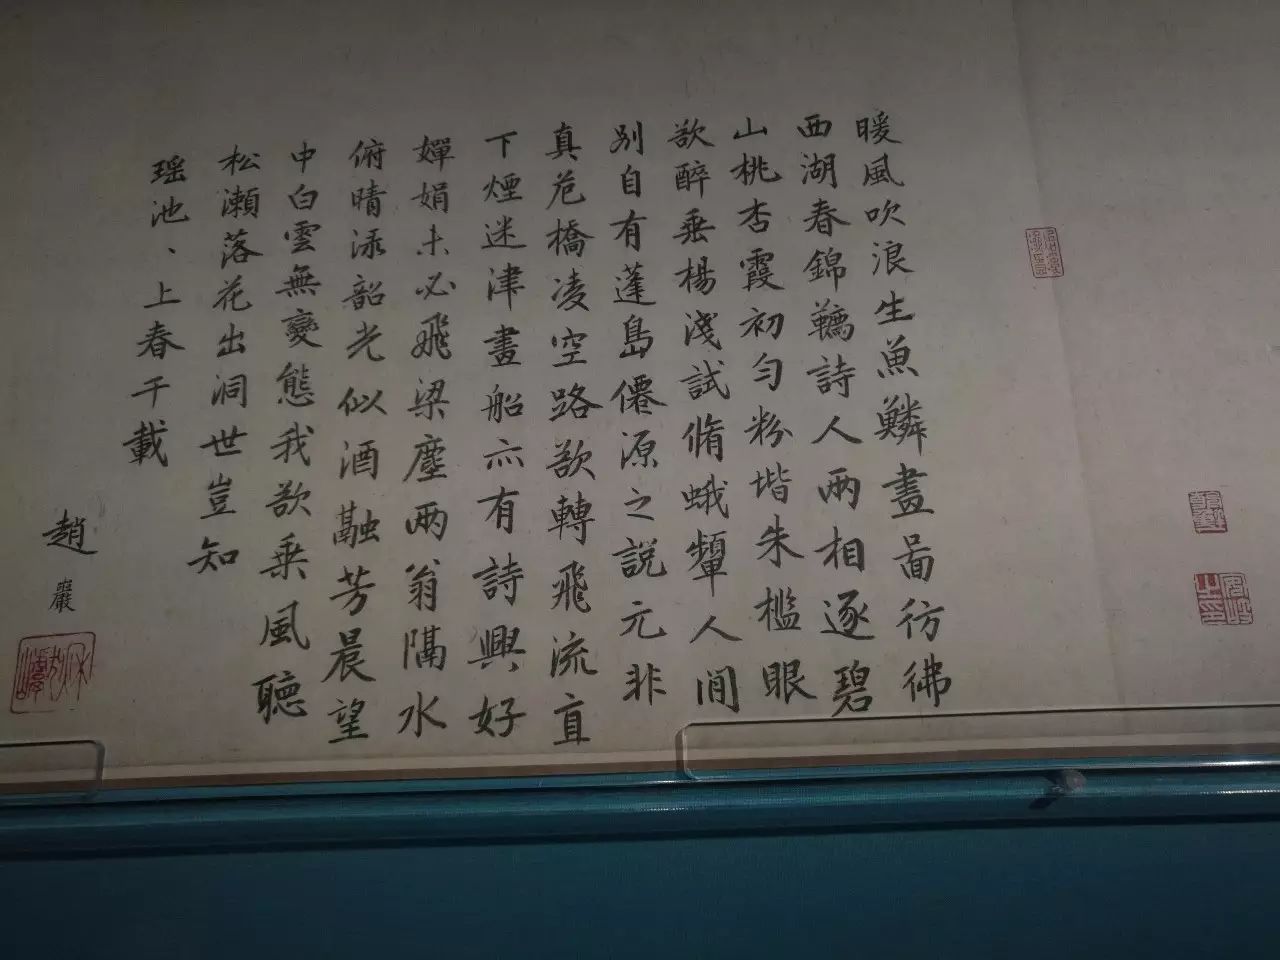 暖風吹浪生魚鱗畫啚彷彿
西湖春錦韉詩人兩相逐碧
山桃杏霞初勻粉堦朱檻眼
欲醉垂楊淺試脩蛾顰人閒
別自有蓬島僊源之說元非
真危橋凌空路欲轉飛流直
下煙迷津畫船亦有詩興好
嬋娟未必飛梁塵兩翁隔水
俯晴淥韶光似酒融芳晨望
中白雲無變態我欲乘風聽
松瀨落花出洞世豈知
瑶池、上春千載
趙巖